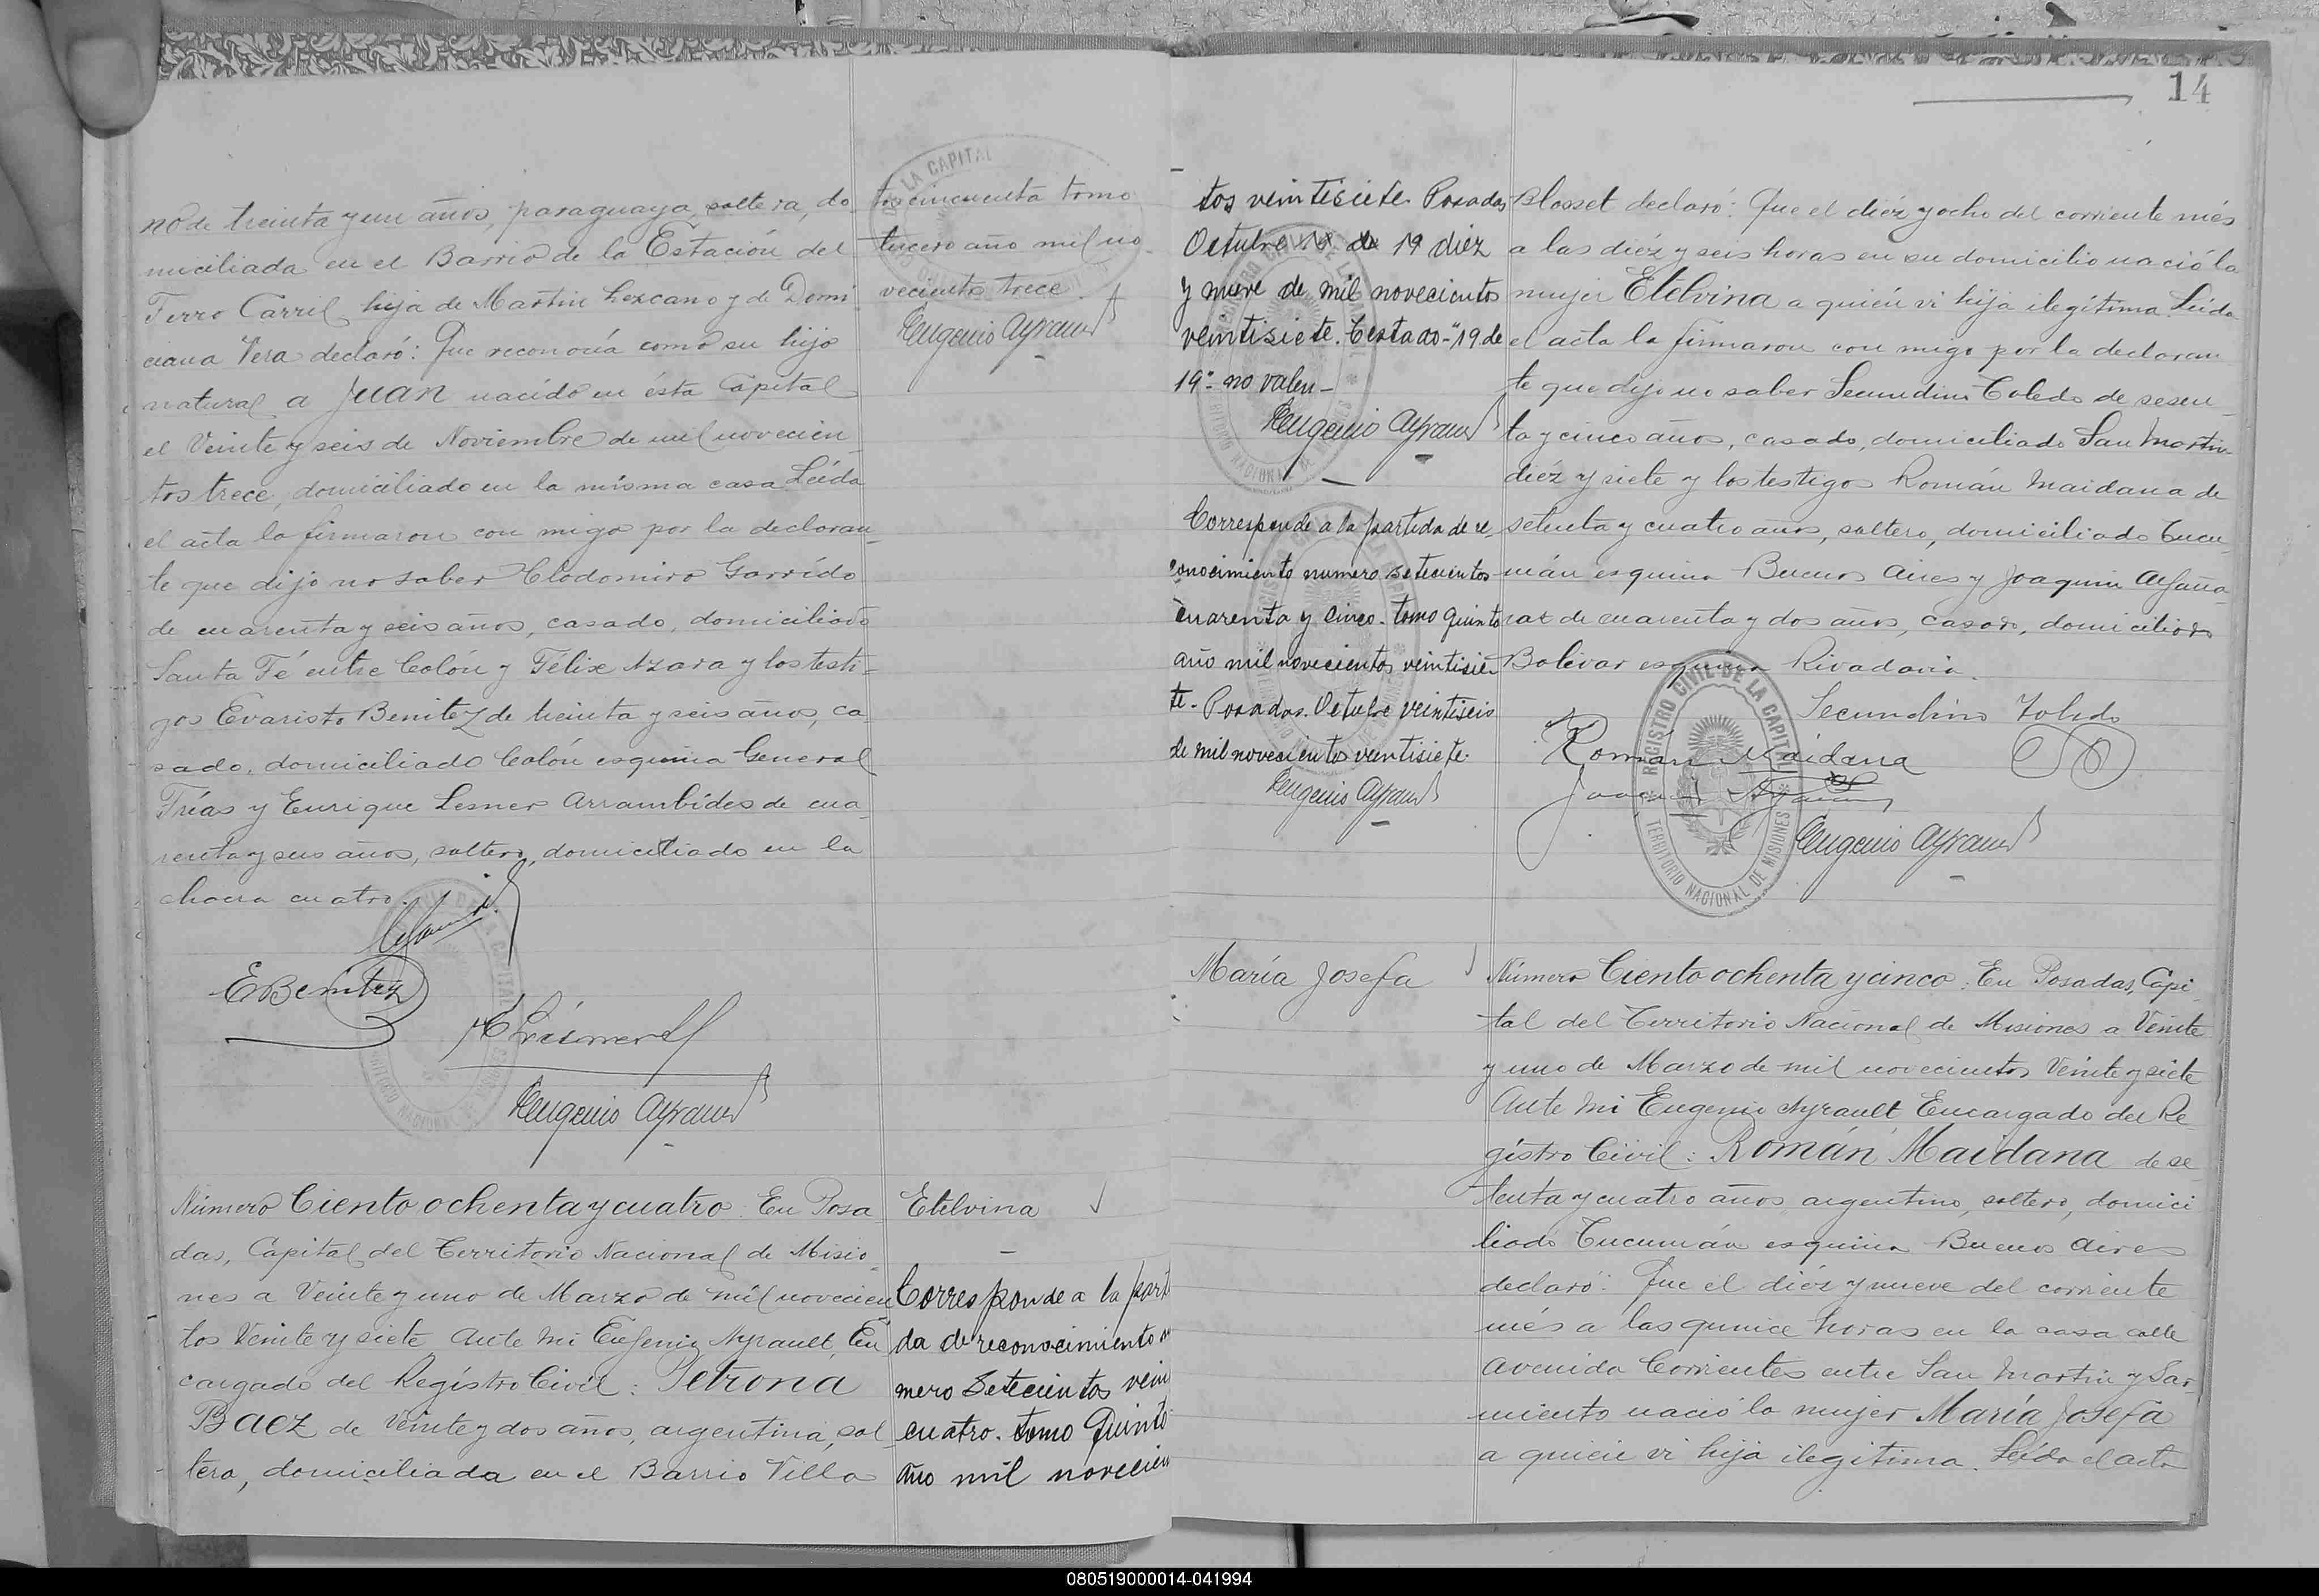 no de treinta y un años, paraguaya, soltera, do
miciliada en el Barrio de la Estación del
Ferro Carril hija de Martin Lezcano y de Domi
ciana Vera declaró: Que reconocía como su hijo
natural a Juan nacido en ésta Capital
el Veinte y seis de Noviembre de mil novecien
tos trece, domiciliado en la misma casa Leída
el acta la firmaron con migo por la declaran
te que dijo no saber Clodomiro Garrido
de cuarenta y seis años, casado, domiciliado
Santa Fé entre Colón y Félix Azara y los testi
gos Evaristo Benitez de treinta y seis años, ca
sado, domiciliado Colón esquina General
Frías y Enrique Lesner Arrambides de cua
renta y seis años, soltero, domiciliado en la
chacra cuatro.
EBenitez
Eugenio Ayrault
tos cincuenta tomo
tercero año mil no
vecientos trece.
Eugenio Ayrault
Número Ciento ochenta y cuatro: En Posa
das, Capital del Territorio Nacional de Misio
nes a Veinte y uno de Marzo de mil novecien
tos Veinte y siete Ante mi Eugenio Ayrault, En
cargado del Registro Civil: Petrona
Baez de Veinte y dos años, argentina, sol
tera, domiciliada en el Barrio Villa
Etelvina
Corresponde a la parti
da de reconocimiento
mero Setecientos vein
cuatro. tomo Quinto
año mil novecien
14
tos veintisiete. Posadas
Octubre 19 diez
y nueve de mil novecientos
veintisiete. Testado-"19 de
19"- no valen-
Eugenio Ayrault
Corresponde a la partida de re
conocimiento numero setecientos
cuarenta y cinco. tomo quinto
año mil novecientos veintisie
te. Posadas. Octubre veintiseis
de mil novecientos veintisiete.
Eugenio Ayrault
Blosset declaró: Que el diéz y ocho del corriente més
a las diéz y seis horas en su domicilio nació la
mujer Etelvina a quién vi hija ilegítima Leída
el acta la firmaron con migo por la declaran
te que dijo no saber Secundino Toledo de sesen
ta y cinco años, casado, domiciliado San Martin
diéz y siete y los testigos Román Maidana de
setenta y cuatro años, soltero, domiciliado Tucu
mán esquina Buenos Aires y Joaquin Alfaña
raz de cuarenta y dos años, casado, domiciliado
Bolivar esquina Rivadavia.
Secundino Toledo
Román Maidana
Eugenio Ayrault
REGISTRO CIVIL DE LA CAPITAL
TERRITORIO NACIONAL DE MISIONES
María Josefa
Número Ciento ochenta y cinco: En Posadas, Capi
tal del Territorio Nacional de Misiones a Veinte
y uno de Marzo de mil novecientos Veinte y siete
Ante mi Eugenio Ayrault Encargado del Re
gistro Civil: Román Maidana de se
tenta y cuatro años argentino, soltero, domici
liado Tucumán esquina Buenos Aires
declaró: Que el diéz y nueve del corriente
més a las quince horas en la casa calle
Avenida Corrientes entre San Martin y Sar
miento nació la mujer María Josefa
a quien vi hija ilegítima. Leída el acta
080519000014-041994